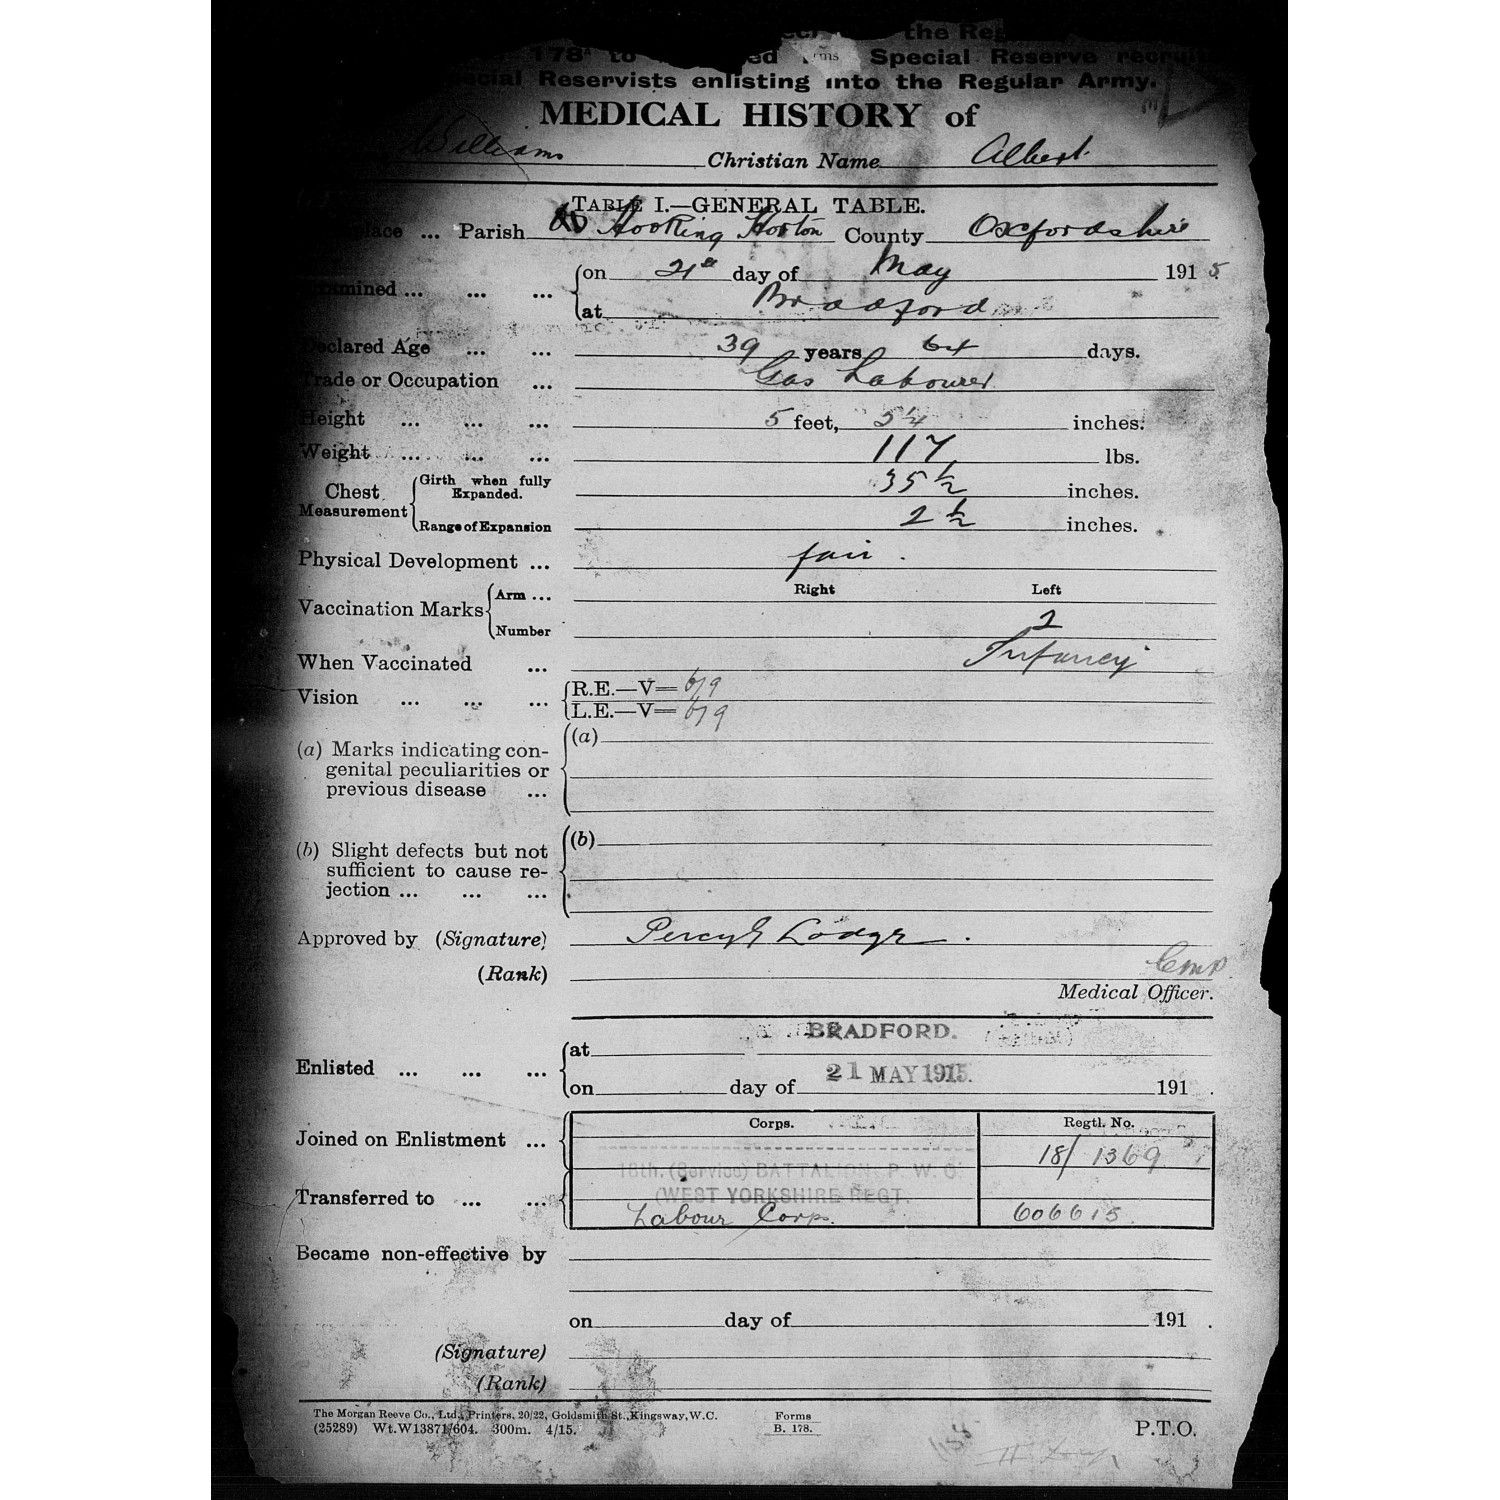 the Reg
178A to ed Special Reserve recruit
ecial Reservists enlisting into the Regular Army.
MEDICAL HISTORY of
Williams Christian Name Albert
TABLE I.—GENERAL TABLE.
place ... Parish Hooking Horton County Oxfordshire
amined ... ... ... on 21st day of May 1915
at Bradford
Declared Age ... ... 39 years 64 days.
Trade or Occupation ... Gas Labourer
Height ... ... ... 5 feet, 5¼ inches.
Weight ... ... ... 117 lbs.
Chest Measurement Girth when fully Expanded. 35 ½ inches.
Range of Expansion 2 ½ inches.
Physical Development ... fair.
Right Left
Vaccination Marks Arm ...
Number 2
When Vaccinated ... Infancy
Vision ... ... ... R.E.—V= 6/9
L.E.—V= 6/9
(a) Marks indicating con- (a)
genital peculiarities or
previous disease ...
(b) Slight defects but not (b)
sufficient to cause re-
jection ... ... ...
Approved by (Signature) Percy E Lodge.
(Rank)
Medical Officer.
BRADFORD.
Enlisted ... ... ... at
on day of 21 MAY 1915. 191 .
Corps. Regtl. No.
Joined on Enlistment ... 18/1369
18th. (Service) BATTALION P. W. O.
Transferred to ... ... (WEST YORKSHIRE REGT.
Labour Corps. 606615.
Became non-effective by
on day of 191 .
(Signature)
(Rank)
The Morgan Reeve Co., Ltd., Printers, 20/22, Goldsmith St., Kingsway, W.C. Forms
(25289) Wt.W13871/604. 300m. 4/15. B. 178. P.T.O.